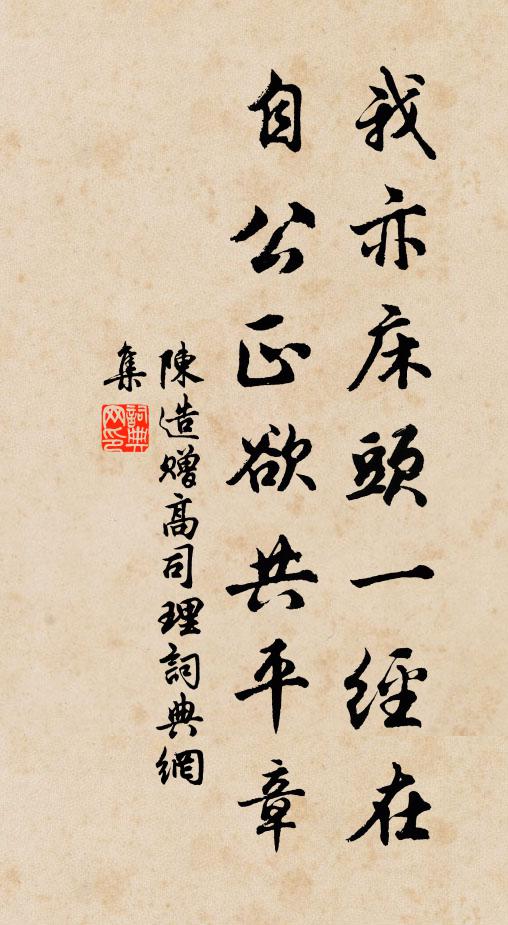 我亦床頭一經在
自公正欲共平章
陳造贈高司理詞典網
集
詞典
网印